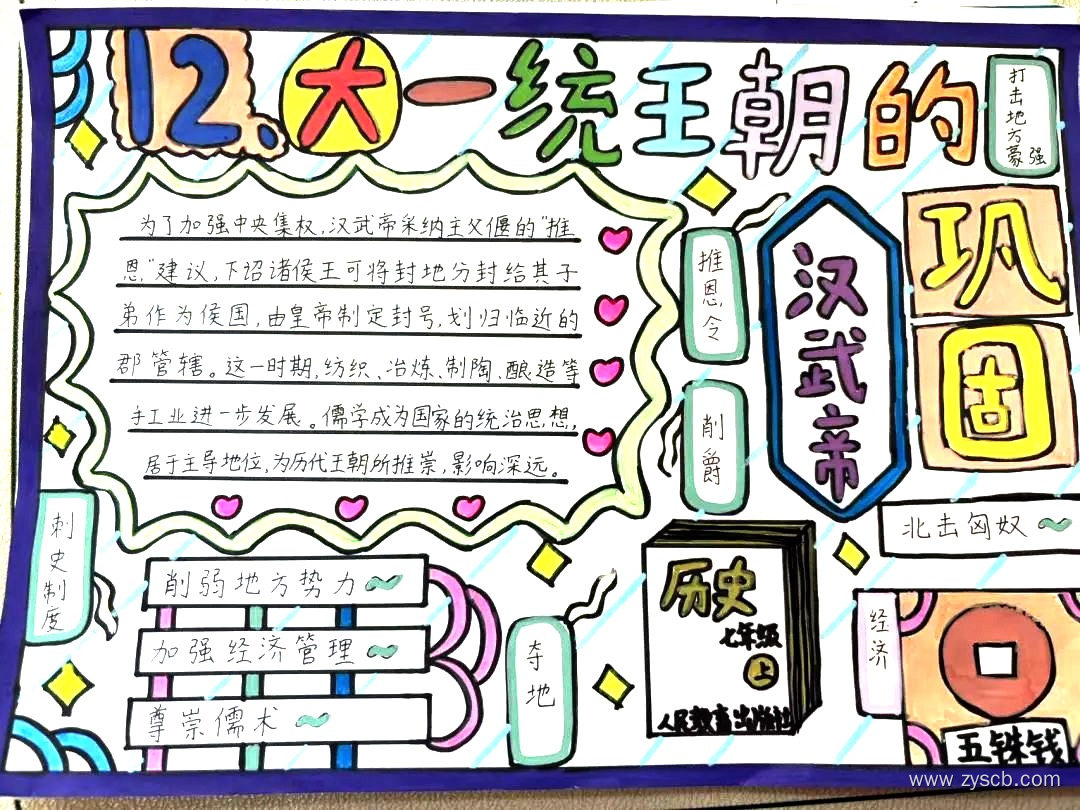 12.大一统王朝的
巩固
打击地方豪强
为了加强中央集权,汉武帝采纳主父偃的"推
恩"建议,下诏诸侯王可将封地分封给其子
弟作为侯国,由皇帝制定封号,划归临近的
郡管辖。这一时期,纺织、冶炼、制陶、酿造等
手工业进一步发展。儒学成为国家的统治思想,
居于主导地位,为历代王朝所推崇,影响深远。
推恩令
削爵
汉武帝
北击匈奴
刺史制度
削弱地方势力
加强经济管理
尊崇儒术
夺地
历史
七年级
上
人民教育出版社
经济
五铢钱
www.zyscb.com